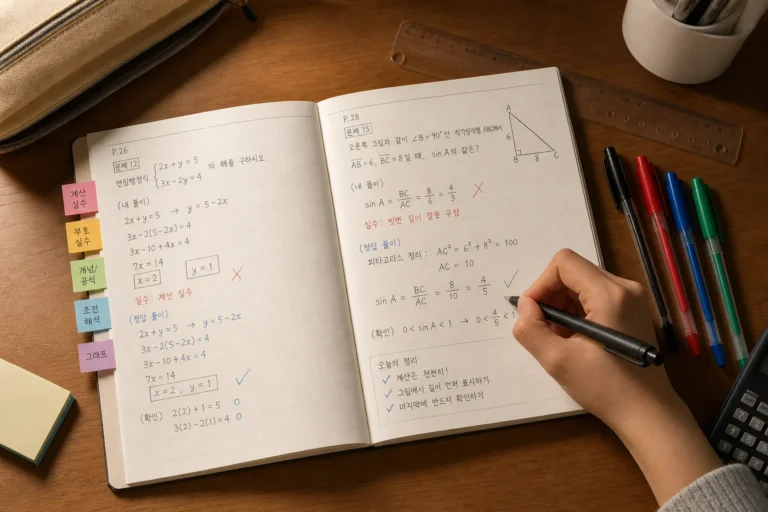 계산
실수
부호
실수
개념/
공식
조건
해석
그래프
P.26
문제 12
연립방정식 { 2x + y = 5
3x - 2y = 4 의 해를 구하시오.
(내 풀이)
2x + y = 5 → y = 5 - 2x
3x - 2(5 - 2x) = 4
3x - 10 + 4x = 4
7x = 14
x = 2 y = 1
X
실수: 계산 실수
(정답 풀이)
2x + y = 5 → y = 5 - 2x
3x - 2(5 - 2x) = 4
3x - 10 + 4x = 4
7x = 14
x = 2 , y = 1 ✓
(확인) 2(2) + 1 = 5 O
3(2) - 2(1) = 4 O
P.28
문제 15
오른쪽 그림과 같이 ∠B = 90° 인 직각삼각형 ABC에서
AB = 6, BC = 8 일 때, sin A의 값은?
A
6
B 8 C
(내 풀이)
sin A = BC/AC = 8/6 = 4/3 X
실수: 빗변 길이 잘못 구함
(정답 풀이)
피타고라스 정리: AC² = 6² + 8² = 100
AC = 10
sin A = BC/AC = 8/10 = 4/5 ✓
(확인) 0 < sin A < 1 → 0 < 4/5 < 1
오늘의 정리
✓ 계산은 천천히!
✓ 그림에서 길이 먼저 표시하기
✓ 마지막에 반드시 확인하기